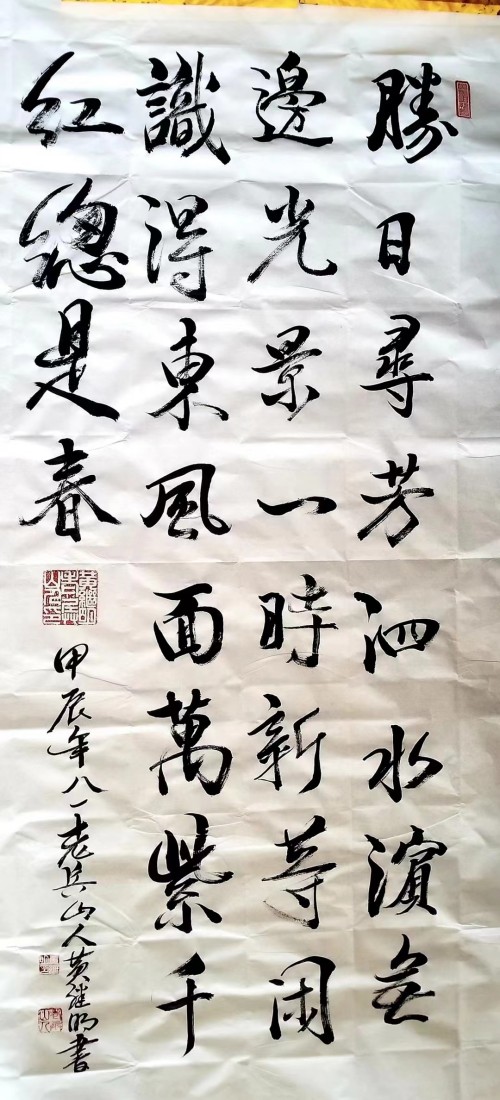 勝日尋芳泗水濱無
邊光景一時新等閑
識得東風面萬紫千
紅總是春
甲辰年八一老兵山人黄繼明書